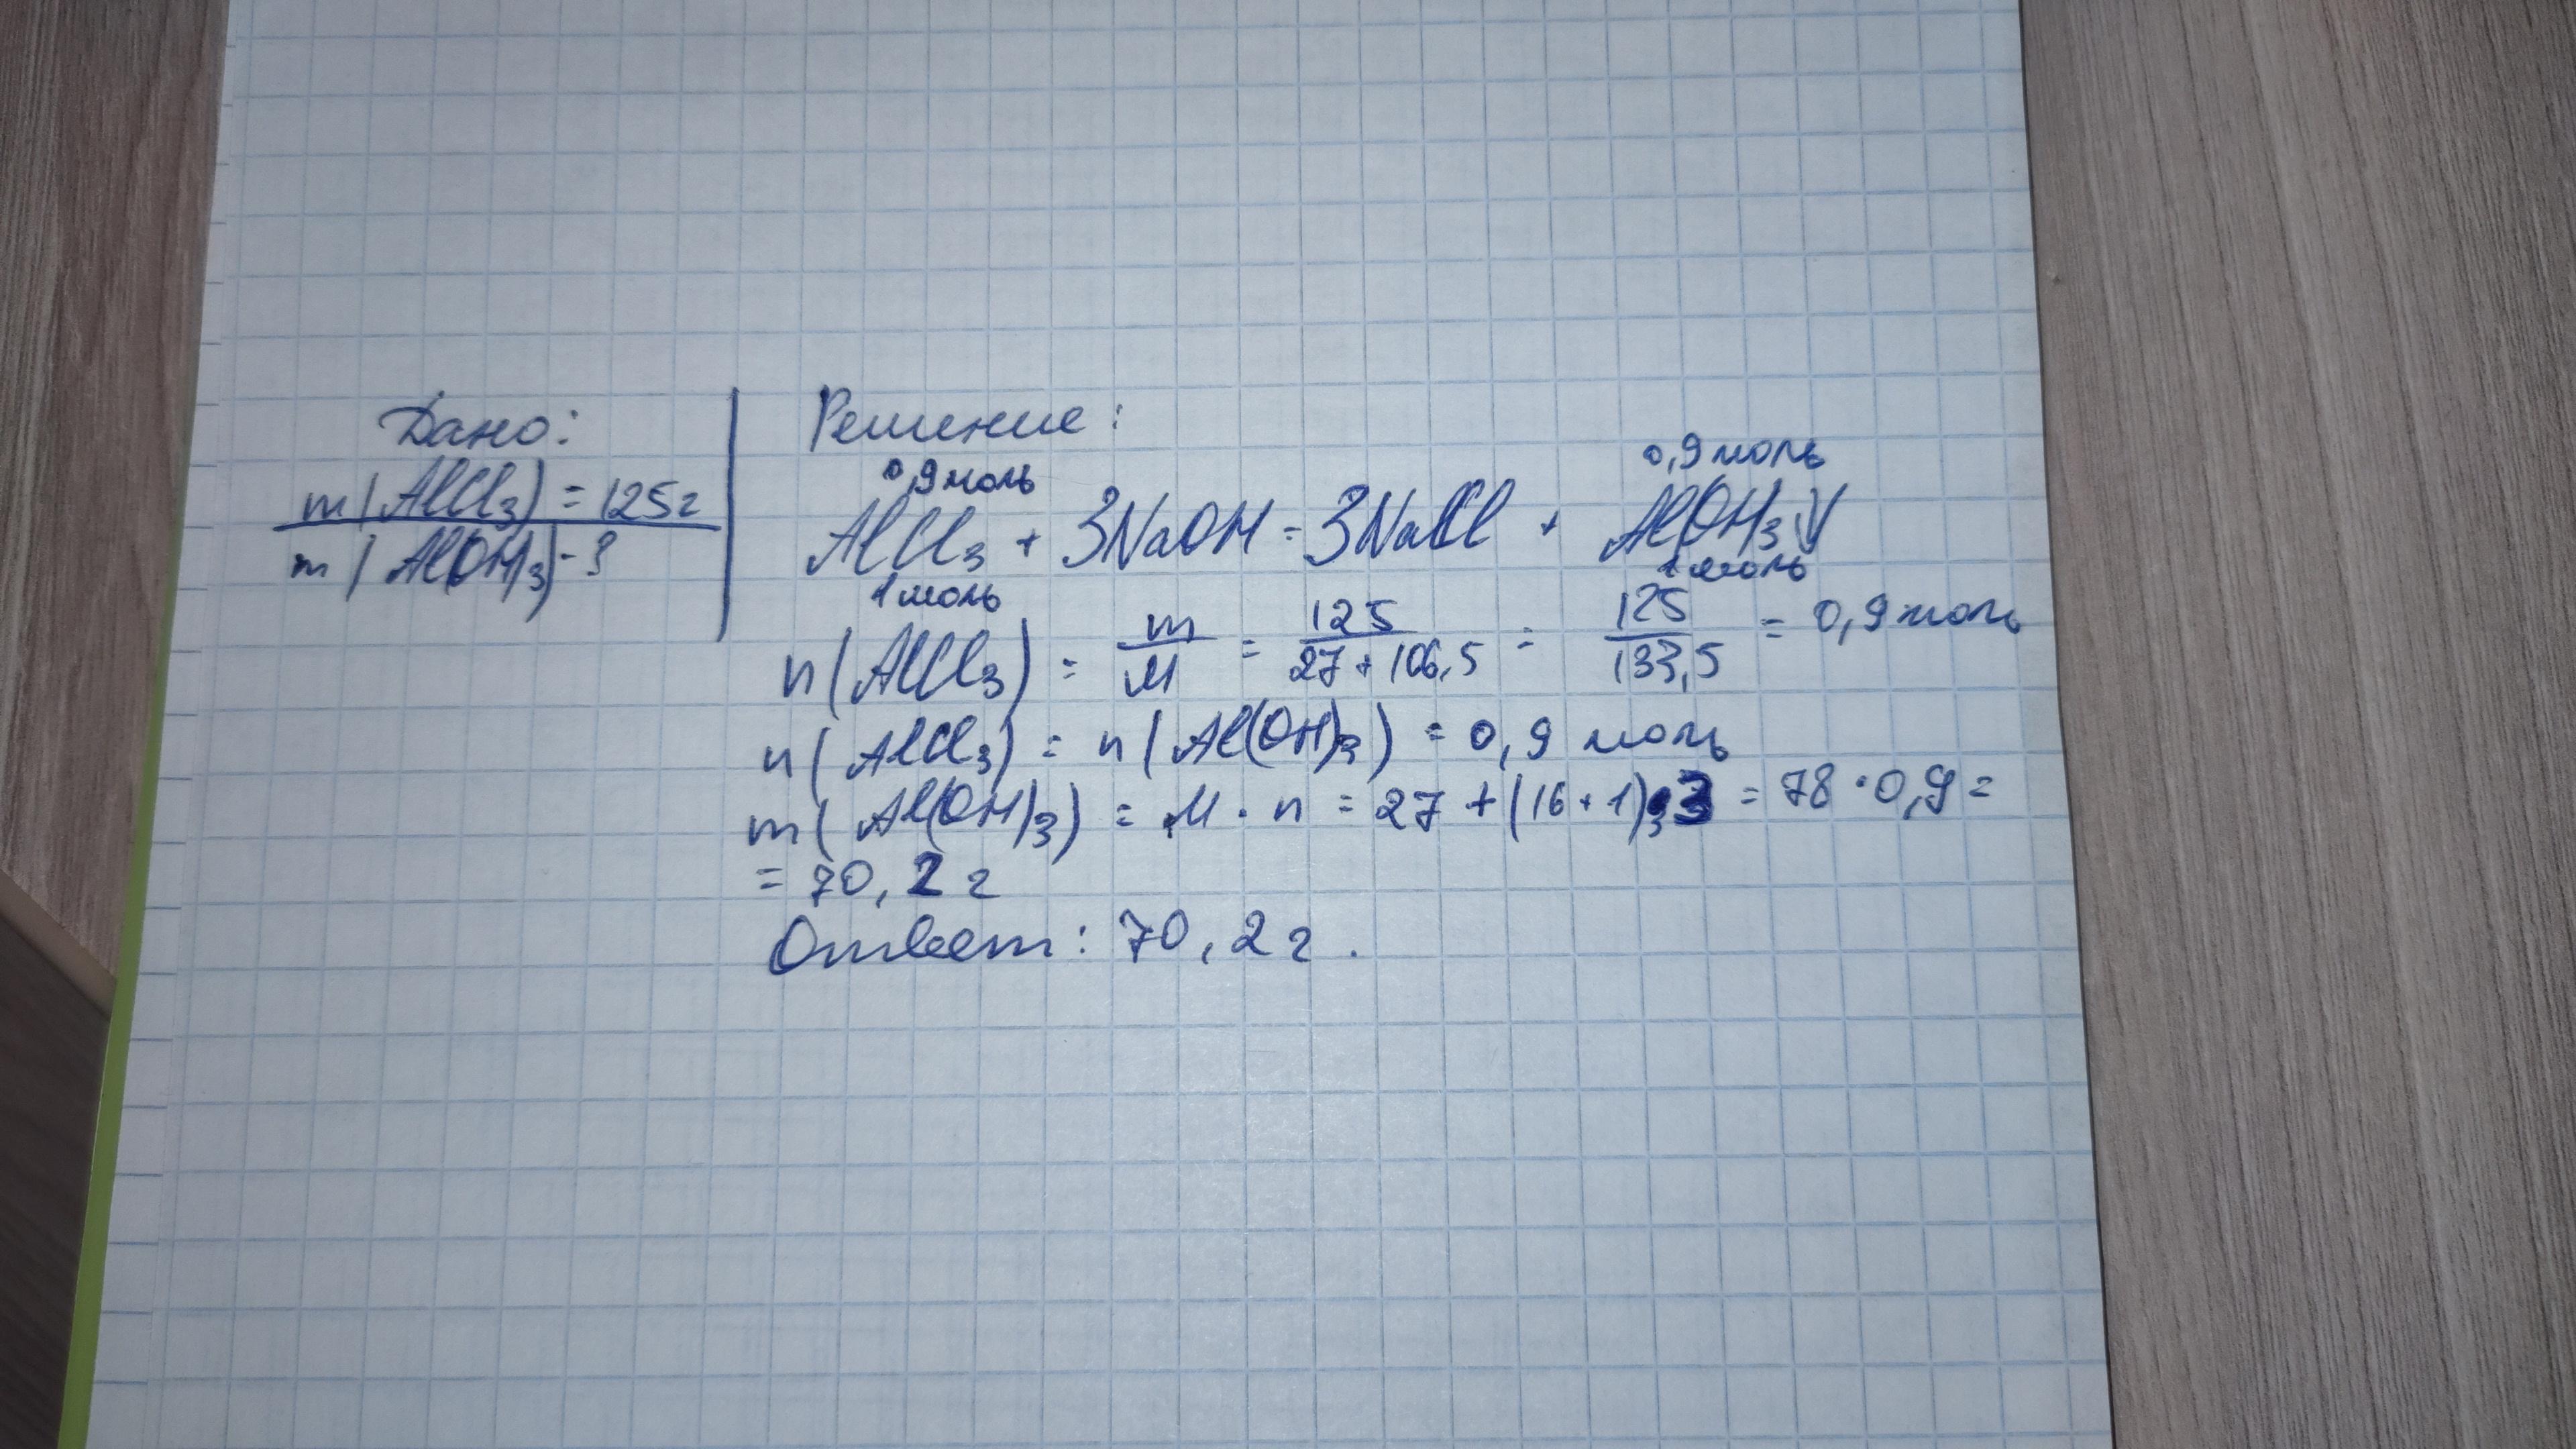 Дано:
m(AlCl3) = 125г
m(Al(OH)3) - ?
Решение:
0,9 моль 0,9 моль
AlCl3 + 3NaOH = 3NaCl + Al(OH)3↓
1 моль 1 моль
n(AlCl3) = m/M = 125/27+106,5 = 125/133,5 = 0,9 моль
n(AlCl3) = n(Al(OH)3) = 0,9 моль
m(Al(OH)3) = M · n = 27 + (16+1)·3 = 78 · 0,9 =
= 70,2 г
Ответ: 70,2 г.